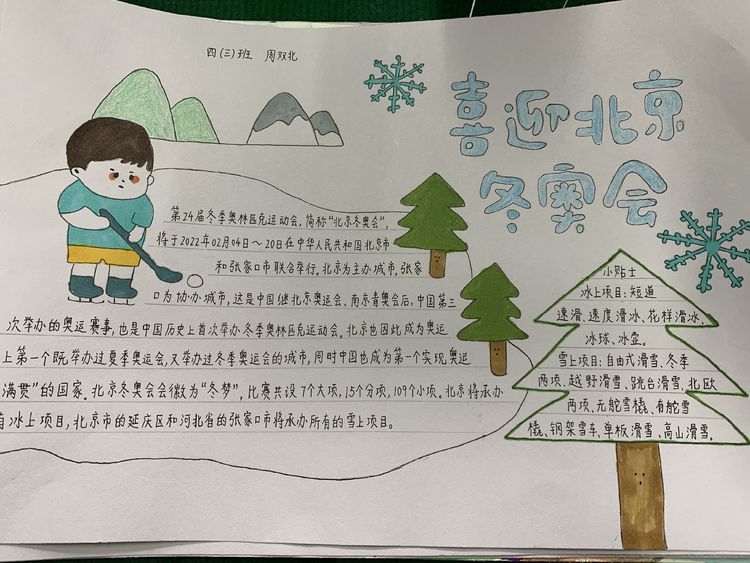 四(三)班 周双北
喜迎北京
冬奥会
第24届冬季奥林匹克运动会,简称“北京冬奥会”,
将于2022年02月04日~20日在中华人民共和国北京市
和张家口市联合举行。北京为主办城市,张家
口为协办城市,这是中国继北京奥运会、南京青奥会后,中国第三
次举办的奥运赛事,也是中国历史上首次举办冬季奥林匹克运动会。北京也因此成为奥运
上第一个既举办过夏季奥运会,又举办过冬季奥运会的城市,同时中国也成为第一个实现奥运
满贯”的国家。北京冬奥会会徽为“冬梦”,比赛共设7个大项,15个分项,109个小项。北京将承办
有冰上项目,北京市的延庆区和河北省的张家口市将承办所有的雪上项目。
小贴士
冰上项目:短道
速滑、速度滑冰、花样滑冰、
冰球、冰壶。
雪上项目:自由式滑雪、冬季
两项、越野滑雪、跳台滑雪、北欧
两项、无舵雪橇、有舵雪
橇、钢架雪车、单板滑雪、高山滑雪。